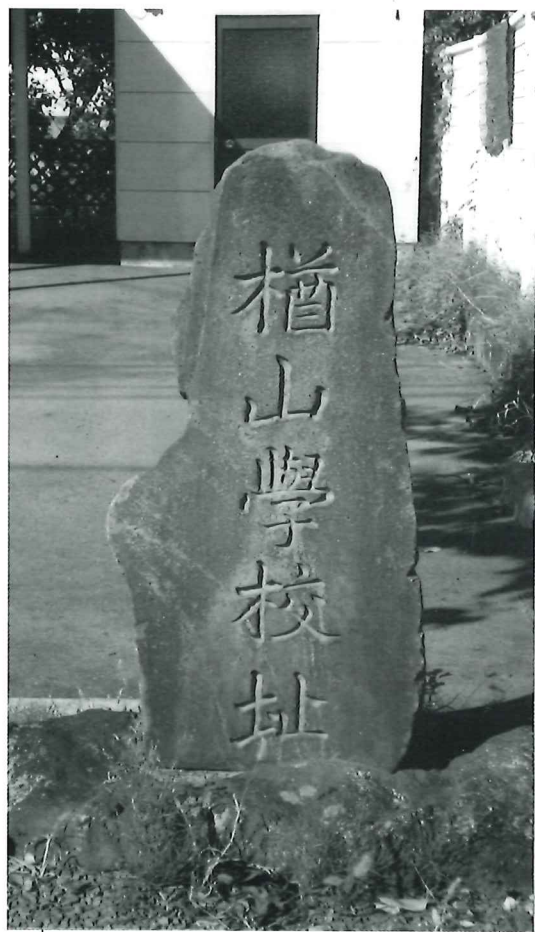 楢山學校址